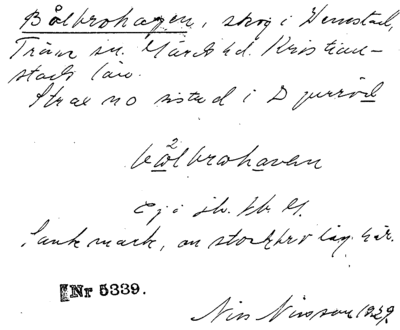 Bålbrohagen, skog i Venestad,
Träne sn. Gärds hd. Kristian-
stads län.
Strax no sistad i Djurröd
bålbrohaven
Ej i jb.
Sank mark, en stockbro låg här.
Nr 5339.
Nils Nilsson 1929.